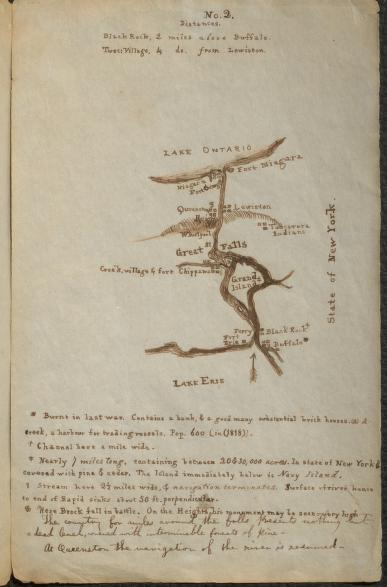 No. 2.
Distances.
Black Rock, 2 miles above Buffalo.
Tusc: Village, 4 do. from Lewiston.
LAKE ONTARIO
Fort Niagara
Niagara
Fort
Queenston
Lewiston
Whirlpool
Tuscarora
Indians
Great Falls
Creek, village & fort Chippawa
Grand
Island
State of New York.
Ferry
Black Rock †
Fort
Erie
Buffalo *
LAKE ERIE
* Burnt in last war. Contains a bank, & a good many substantial brick houses.
creek, a harbour for trading vessels. Pop. 600 (in (1818)).
† Channel here a mile wide.
* Nearly 7 miles long, containing between 20 & 30,000 acres. In state of New York &
covered with pine & cedar. The Island immediately below is Navy Island.
Stream here 2½ miles wide, & navigation terminates. Surface thence
to end of Rapid sinks about 50 ft. perpendicular.
Here Brock fell in battle. On the Heights, his monument may be seen very high
the country for miles around the falls presents nothing but
a dead level, covered with interminable forests of pine -
At Queenston the navigation of the river is resumed -